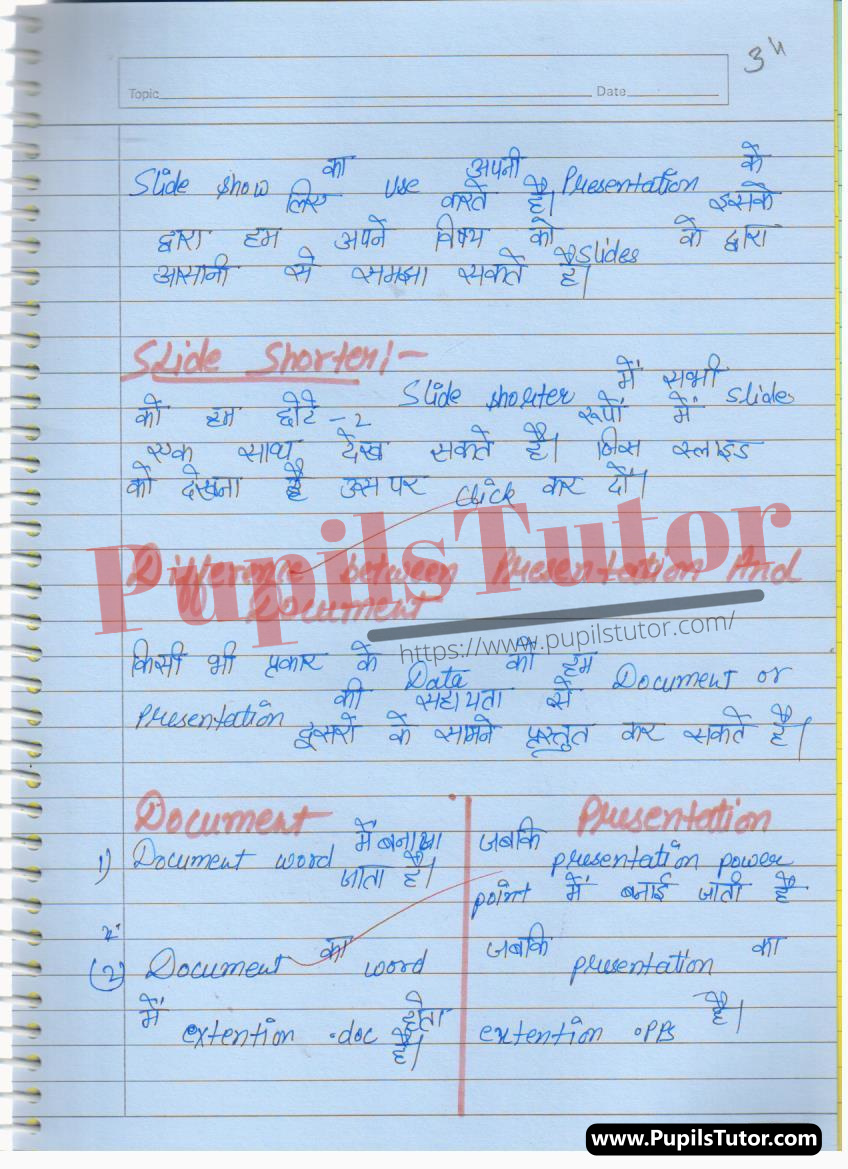 34
Topic Date
Slide show का use अपनी Presentation के
लिए करते है। इसके
द्वारा हम अपने विषय को Slides के द्वारा
आसानी से समझा सकते है।
Slide Shorten:-
Slide shorter में सभी Slides
को हम छोटे-2 रूपों में
एक साथ देख सकते है। जिस स्लाइड
को देखना है उस पर Click कर दों।
Difference between Presentation And
Document
PupilsTutor
https://www.pupilstutor.com/
किसी भी प्रकार के Data को हम Document or
Presentation की सहायता से
दूसरों के सामने प्रस्तुत कर सकते है।
Document Presentation
1) Document word में बनाया जबकि presentation power
जाता है। point में बनाई जाती है
(2) Document का word जबकि presentation का
में extention .doc होता extention .PPs है।
है।
www.PupilsTutor.com